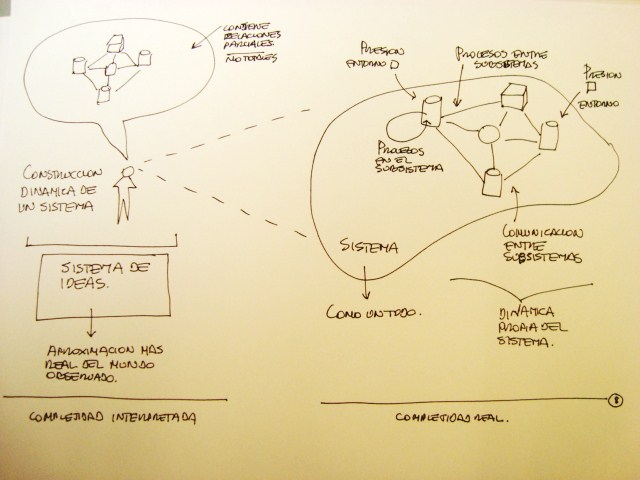 CONTIENE
RELACIONES
PARCIALES
NOTORIES
CONSTRUCCION
DINAMICA DE
UN SISTEMA
SISTEMA DE
IDEAS.
APROXIMACION MAS
REAL DEL MUNDO
OBSERVADO.
COMPLEJIDAD INTERPRETADA
PRESION
ENTORNO
PROCESOS ENTRE
SUBSISTEMAS
PRESION
ENTORNO
PROCESOS
EN EL
SUBSISTEMA
COMUNICACION
ENTRE
SUBSISTEMAS
SISTEMA
COMO UN TODO.
DINAMICA
PROPIA DEL
SISTEMA.
COMPLEJIDAD REAL.